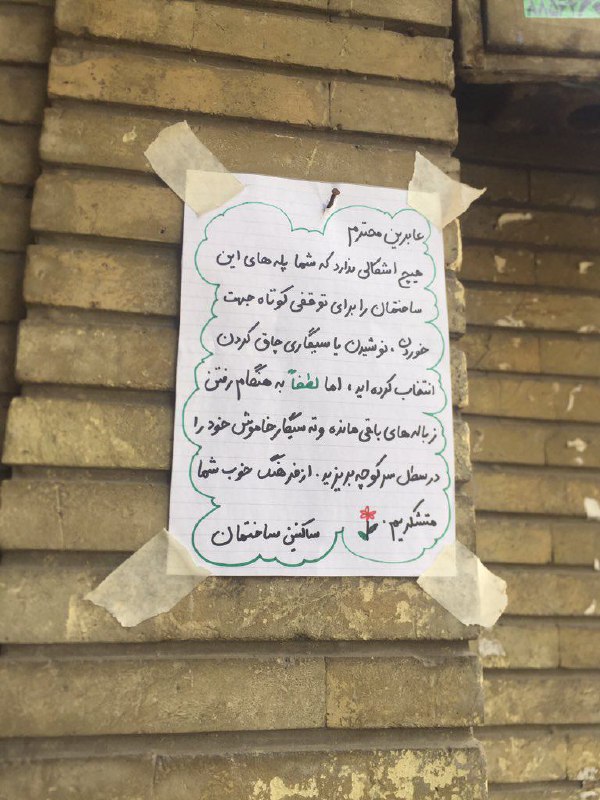 عابرین محترم
هیچ اشکالی ندارد که شما پله های این
ساختمان را برای توقفی کوتاه جهت
خوردن، نوشیدن یا سیگاری چاق کردن
انتخاب کرده اید، اما لطفاً به هنگام رفتن
زباله های باقی مانده و ته سیگار خاموش خود را
در سطل سر کوچه بریزید. از فرهنگ خوب شما
متشکریم.
ساکنین ساختمان